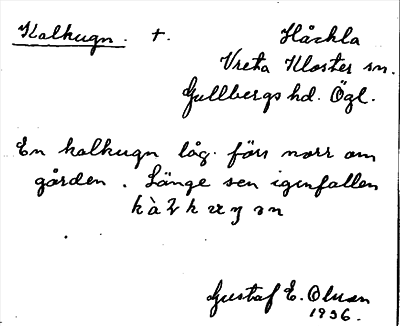 Kalkugn. †. Håckla
Vreta Kloster sn.
Gullbergs hd. Ögl.
En kalkugn låg förr norr om
gården. Länge sen igenfallen
Gustaf E. Olsson
1936.